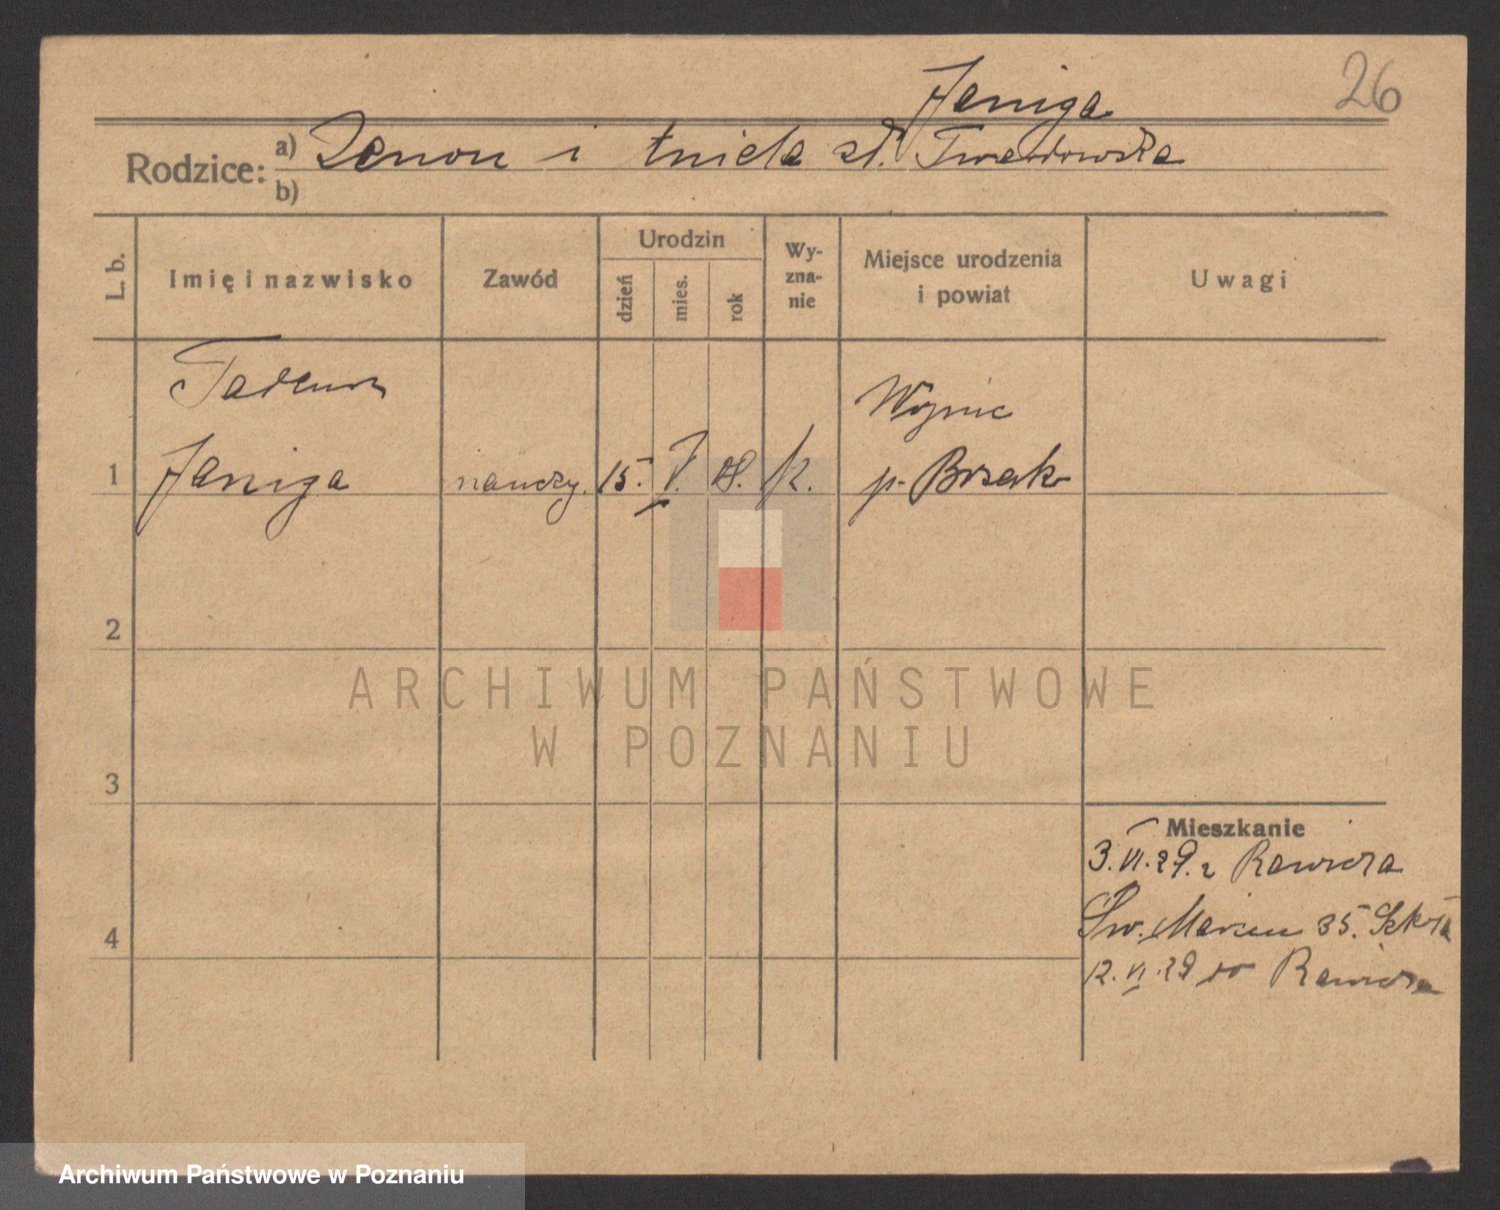 26
Janiga
Rodzice: a) Zenon i Aniela zd. Twardowska
b)
L. b.
Imię i nazwisko
Zawód
Urodzin
dzień
mies.
rok
Wy-
zna-
nie
Miejsce urodzenia
i powiat
Uwagi
Tadeusz
Wojnicz
1 Janiga nauczy. 15. V. 08. k. p. Brzesko
2
3
4
Mieszkanie
3. VI. 29. z Rawicza
Św. Marcin 35. Szkoła
12. VI. 29 do Rawicza
ARCHIWUM PAŃSTWOWE
W POZNANIU
Archiwum Państwowe w Poznaniu